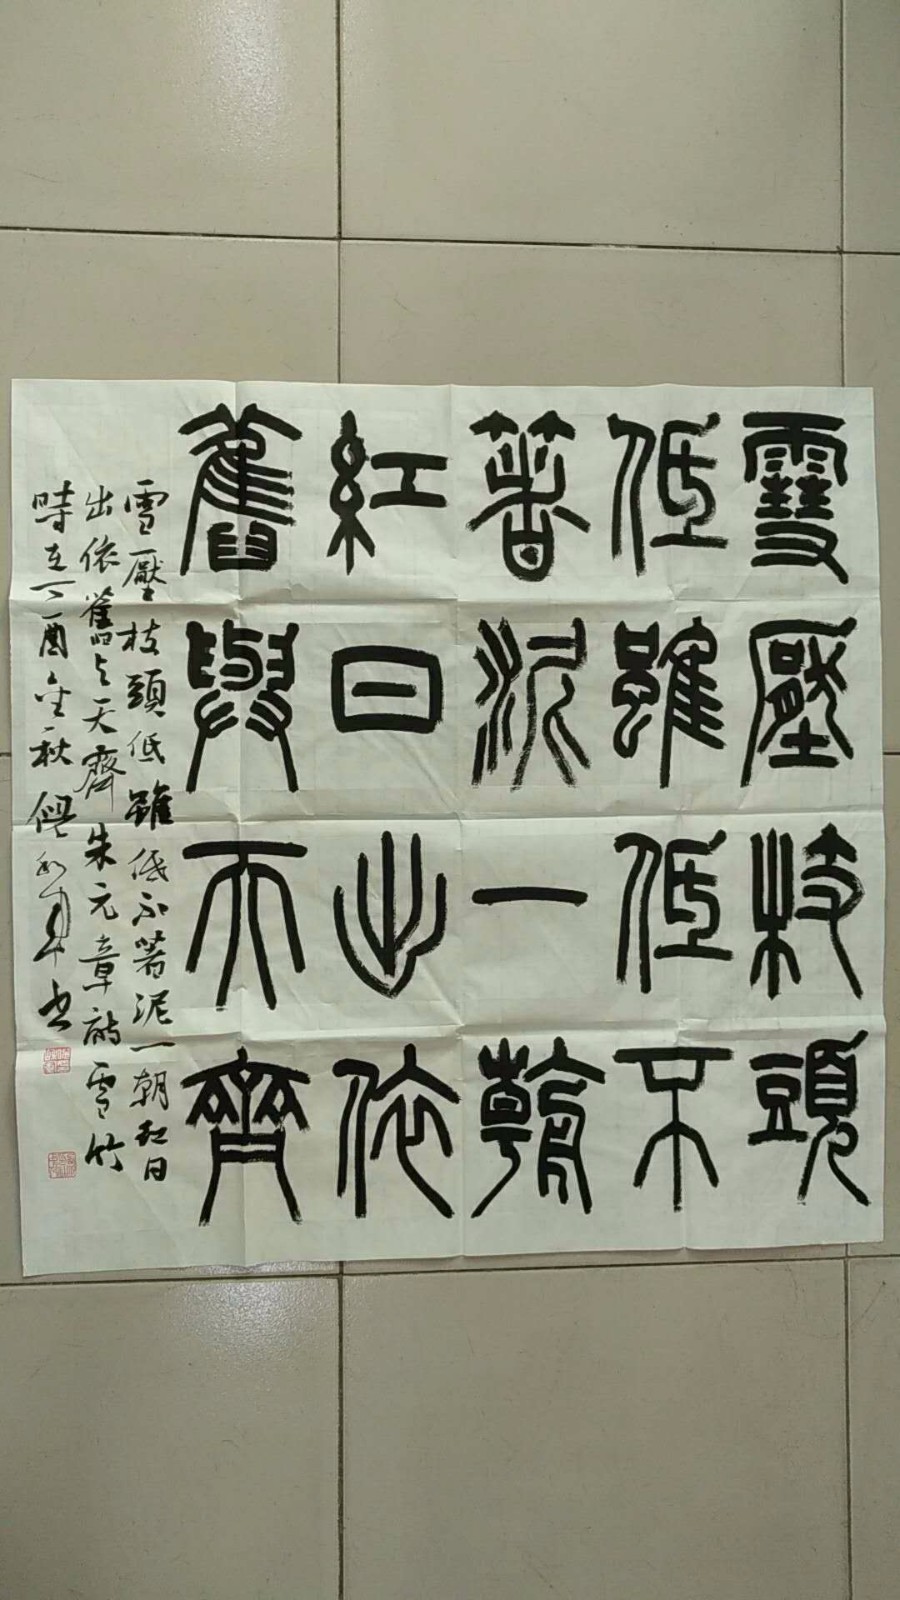 雪壓枝頭
低雖低不
著泥一朝
紅日出依
舊與天齊
雪壓枝頭低雖低不著泥一朝紅日
出依舊与天齊朱元章詠雪竹
時在丁酉金秋
書